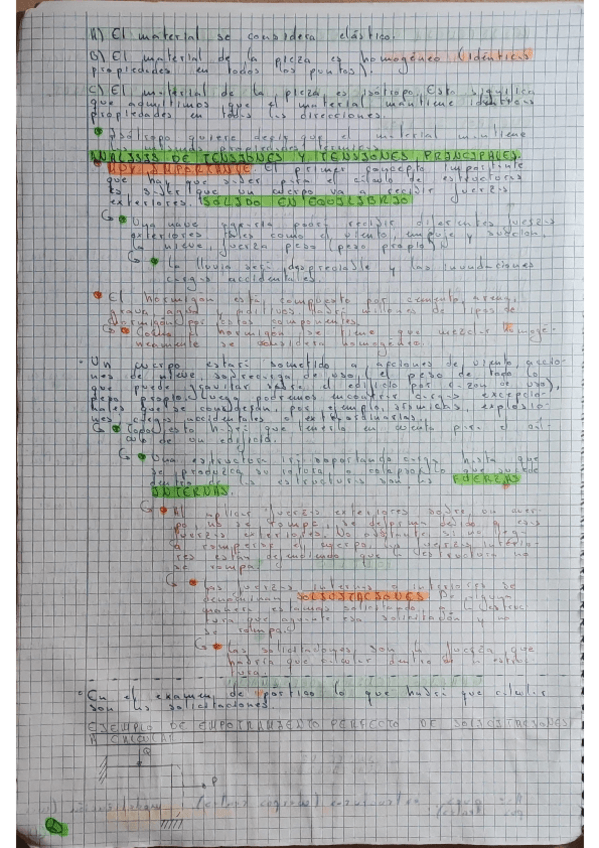 A) El material se considera elástico.
B) El material de la pieza es homogéneo (idénticas
propiedades en todos los puntos).
C) El material de la pieza, es isótropo. Esto significa
que admitimos que el material mantiene idénticas
propiedades en todas las direcciones.
Isótropo quiere decir que el material mantiene
las mismas propiedades
ANÁLISIS DE TENSIONES Y TENSIONES PRINCIPALES.
MUY IMPORTANTE. El primer concepto importante
que hay que saber para el cálculo de estructuras
es saber que un cuerpo va a recibir fuerzas
exteriores. SÓLIDO EN EQUILIBRIO
Una nave agraria podrá recibir diferentes fuerzas
exteriores tales como el viento, empuje y succión,
la nieve, fuerza peso (peso propio).
La lluvia será despreciable y las inundaciones
cargas accidentales.
El hormigón está compuesto por cemento, arena,
grava, agua y aditivos habrá millones de tipos de
hormigón por estos componentes.
Como hormigón se tiene que mezclar homogé-
neamente se considera homogéneo.
Un cuerpo estará sometido a acciones de viento, accio-
nes de nieve, sobrecarga de uso, (el peso de todo lo
que puede gravitar sobre el edificio por razón de uso),
peso propio. Luego podremos encontrar cargas excepcio-
nales que se consideran, por ejemplo, sísmicas, explosio-
nes, cargas accidentales o extraordinarias.
Todo esto habrá que tenerlo en cuenta para el cál-
culo de un edificio.
Una estructura irá soportando carga hasta que
se produzca su rotura o colapso, lo que sucede
dentro de las estructuras son las FUERZAS
INTERNAS.
Al aplicar fuerzas exteriores sobre un cuer-
po no se rompe, se deforma debido a esas
fuerzas exteriores. No obstante, si no llega
a romperse el cuerpo, las fuerzas interio-
res están impidiendo que la estructura no
se rompa.
Las fuerzas internas o interiores se
denominan SOLICITACIONES. De alguna
manera estamos solicitando a la estruc-
tura que aguante esa solicitación y no
se rompa.
Las solicitaciones son la fuerza que
habría que calcular dentro de la estruc-
tura.
En el examen, de pórtico lo que habrá que calcular
son las solicitaciones.
EJEMPLO DE EMPOTRAMIENTO PERFECTO DE SOLICITACIONES
A CALCULAR
Q
P